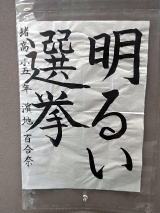 明るい
選挙
堵萬小五年 濱地 百合奈